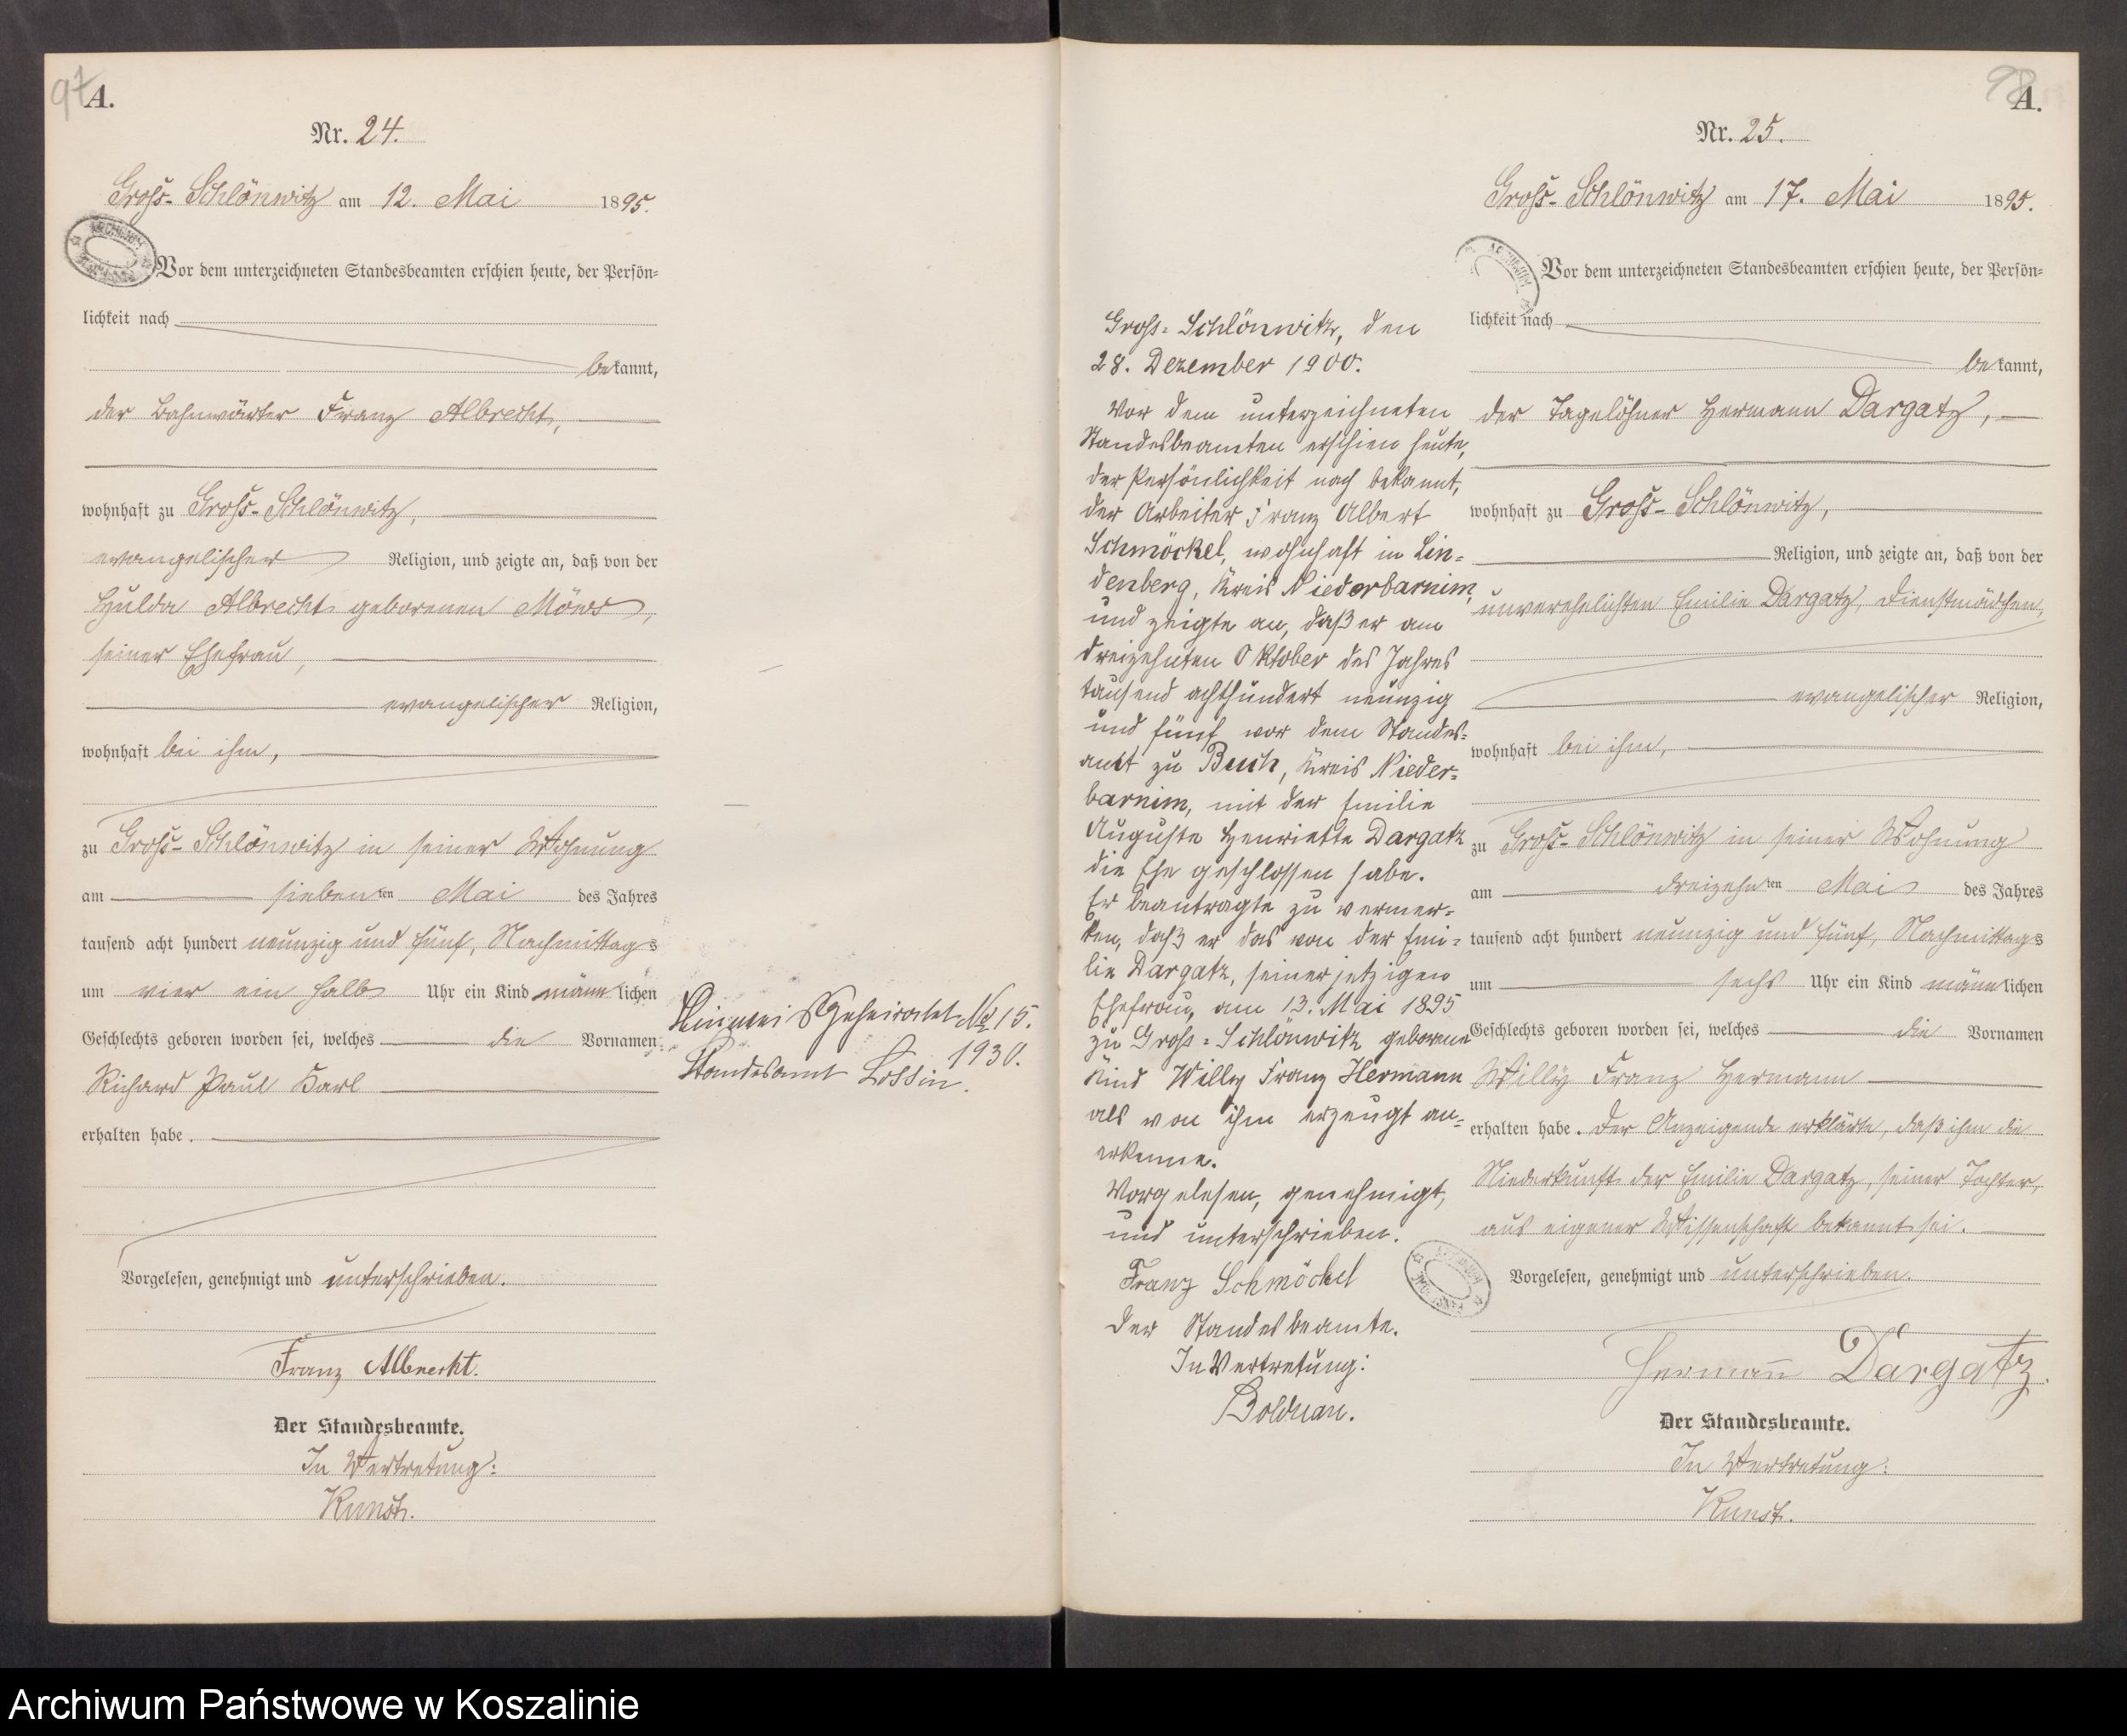 97
A.
Nr. 24.
Groß-Schlönwitz am 12. Mai 1895.
Vor dem unterzeichneten Standesbeamten erschien heute, der Persön=
lichkeit nach
bekannt,
der Bahnwärter Franz Albrecht,
wohnhaft zu Groß-Schlönwitz,
evangelischer Religion, und zeigte an, daß von der
Hulda Albrecht geborenen Möws,
seiner Ehefrau,
evangelischer Religion,
wohnhaft bei ihm,
zu Groß-Schlönwitz in seiner Wohnung
am siebenten Mai des Jahres
tausend acht hundert neunzig und fünf, Nachmittags
um vier ein halb Uhr ein Kind männlichen
Geschlechts geboren worden sei, welches die Vornamen
Richard Paul Karl
erhalten habe.
Vorgelesen, genehmigt und unterschrieben.
Franz Albrecht.
Der Standesbeamte.
In Vertretung:
Kunst.
Hinweis Geheiratet № 15.
1930.
Standesamt Lossin.
Groß=Schlönwitz, den
28. Dezember 1900.
Vor dem unterzeichneten
Standesbeamten erschien heute,
der Persönlichkeit nach bekannt,
der Arbeiter Franz Albert
Schmöckel, wohnhaft in Lin=
denberg, Kreis Niederbarnim,
und zeigte an, daß er am
dreizehnten Oktober des Jahres
tausend achthundert neunzig
und fünf vor dem Standes=
amt zu Buch, Kreis Nieder=
barnim, mit der Emilie
Auguste Henriette Dargatz
die Ehe geschlossen habe.
Er beantragte zu vermer=
ken, daß er das von der Emi=
lie Dargatz, seiner jetzigen
Ehefrau, am 13. Mai 1895
zu Groß=Schlönwitz geborene
Kind Willy Franz Hermann
als von ihm erzeugt an=
erkenne.
Vorgelesen, genehmigt,
und unterschrieben.
Franz Schmöckel
Der Standesbeamte.
In Vertretung:
Bolduan.
98
A.
Nr. 25.
Groß-Schlönwitz am 17. Mai 1895.
Vor dem unterzeichneten Standesbeamten erschien heute, der Persön=
lichkeit nach
bekannt,
der Tagelöhner Hermann Dargatz,
wohnhaft zu Groß-Schlönwitz,
Religion, und zeigte an, daß von der
unverehelichten Emilie Dargatz, Dienstmädchen,
evangelischer Religion,
wohnhaft bei ihm,
zu Groß-Schlönwitz in seiner Wohnung
am dreizehnten Mai des Jahres
tausend acht hundert neunzig und fünf, Nachmittags
um sechs Uhr ein Kind männlichen
Geschlechts geboren worden sei, welches die Vornamen
Willy Franz Hermann
erhalten habe. Der Anzeigende erklärte, daß ihm die
Niederkunft der Emilie Dargatz, seiner Tochter,
aus eigener Wissenschaft bekannt sei.
Vorgelesen, genehmigt und unterschrieben.
Hermann Dargatz.
Der Standesbeamte.
In Vertretung:
Kunst.
Archiwum Państwowe w Koszalinie